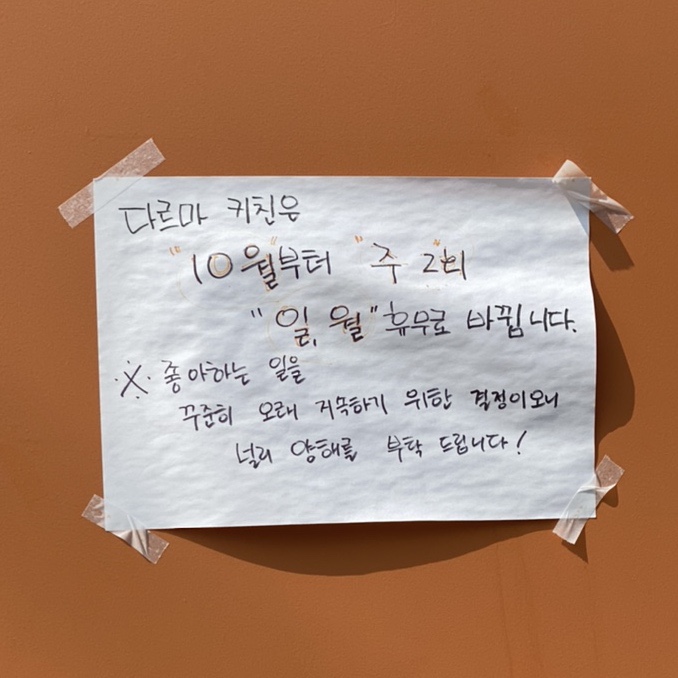 다르마 키친은
"10월"부터 "주 2회"
"일, 월" 휴무로 바뀝니다.
※ 좋아하는 일을
꾸준히 오래 지속하기 위한 결정이오니
널리 양해를 부탁 드립니다!